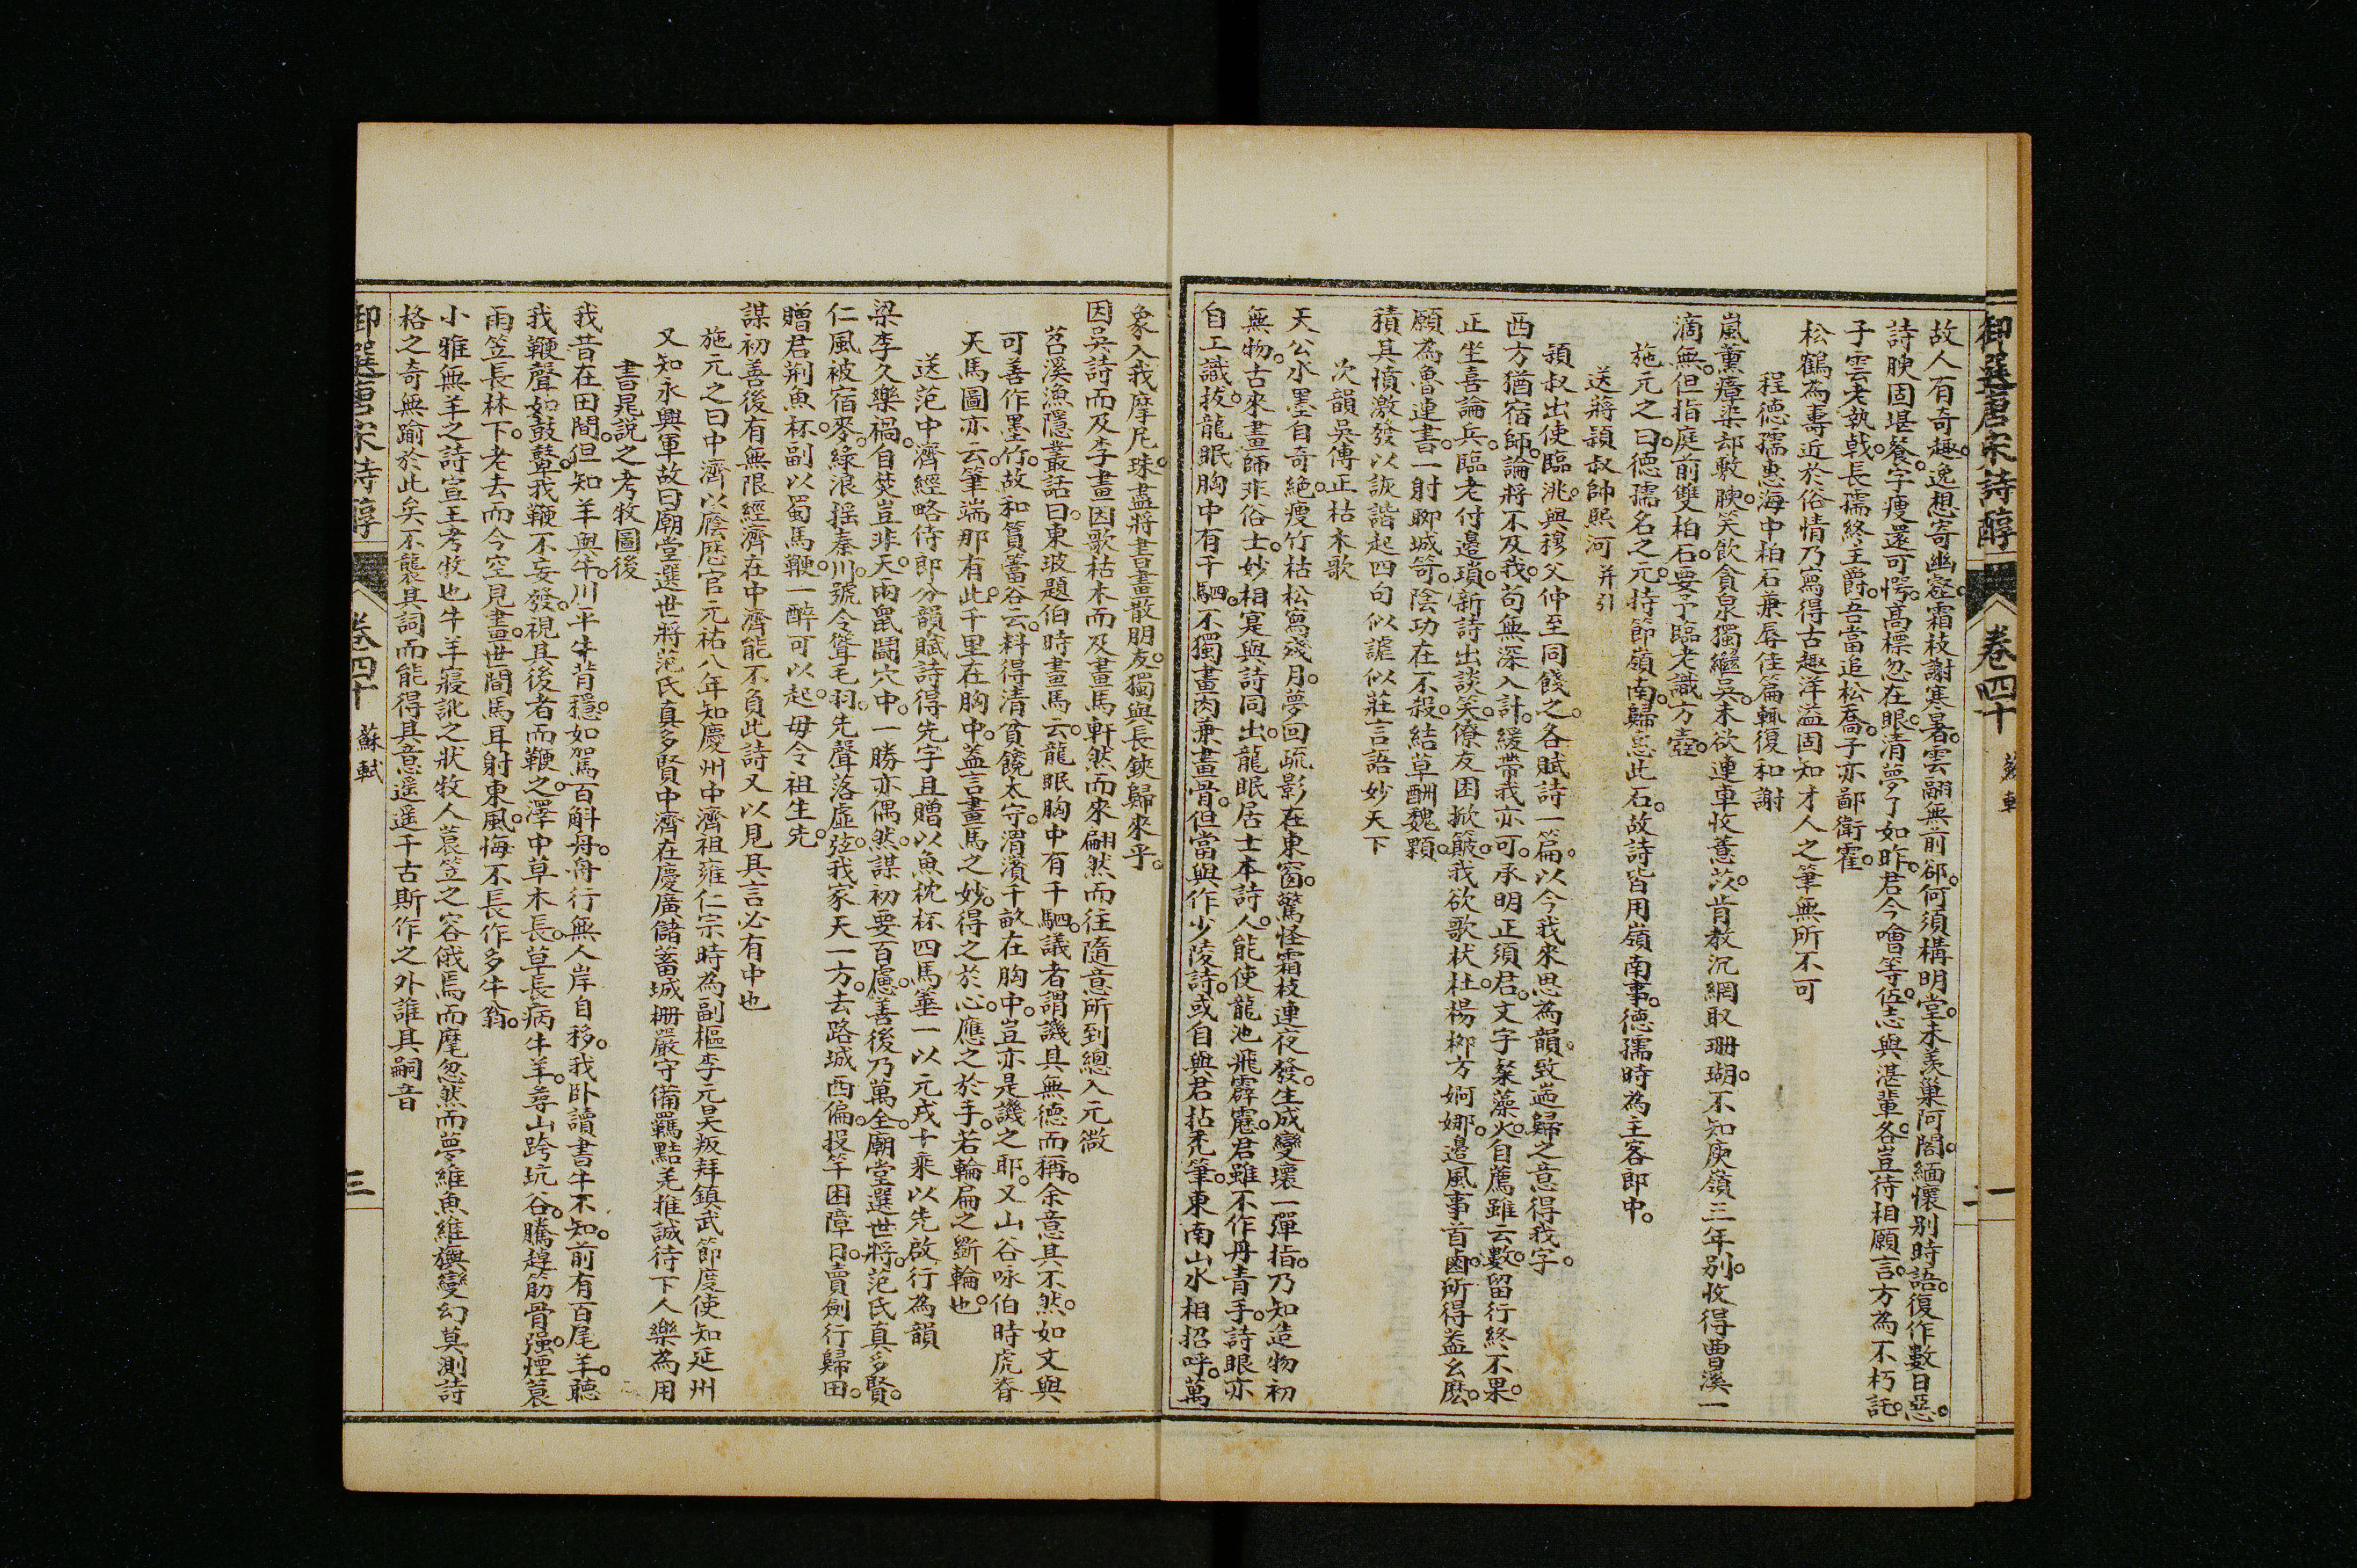 御選唐宋詩醇 卷四十 蘇軾 二
故人有奇趣逸想寄幽壑霜枝謝寒暑雲翮無前郤何須構明堂未羨巢阿閣緬懷别時語復作數日惡
詩腴固堪餐字瘦還可愕高標忽在眼清夢了如昨君今噲等伍志與湛輩各豈待相願言方為不朽託
子雲老執戟長孺終主爵吾當追松喬子亦鄙衛霍
松鶴為壽近於俗情乃寫得古趣洋溢固知才人之筆無所不可
程德孺惠海中柏石兼辱佳篇輒復和謝
嵐薰瘴染却敷腴笑飲貪泉獨繼吳未欲連車收薏苡肯教沉網取珊瑚不知庾嶺三年别收得曹溪一
滴無但指庭前雙柏石要予臨老識方壺
施元之曰德孺名之元持節嶺南歸惠此石故詩皆用嶺南事德孺時為主客郎中
送蔣穎叔帥熙河并引
穎叔出使臨洮與穆父仲至同餞之各賦詩一篇以今我來思為韻致遄歸之意得我字
西方猶宿師論將不及我苟無深入計緩帶我亦可承明正須君文字粲藻火自薦雖云數留行終不果
正坐喜論兵臨老付邊瑣新詩出談笑僚友困掀簸我欲歌杕杜楊柳方婀娜邊風事首鹵所得盖幺麽
願為魯連書一射聊城笴陰功在不殺結草酬魏顆
積其憤激發以詼諧起四句似謔似莊言語妙天下
次韻吳傳正枯木歌
天公水墨自奇絶瘦竹枯松寫殘月夢回疏影在東窗驚怪霜枝連夜發生成變壞一彈指乃知造物初
無物古來畫師非俗士妙相寔與詩同出龍眠居士本詩人能使龍池飛霹靂君雖不作丹青手詩眼亦
自工識拔龍眠胸中有千駟不獨畫肉兼畫骨但當與作少陵詩或自與君拈禿筆東南山水相招呼萬
象入我摩尼珠盡將書畫散朋友獨與長鋏歸來乎
因吳詩而及李畫因歌枯木而及畫馬軒然而來翩然而往隨意所到總入元微
苕溪漁隱叢話曰東坡題伯時畫馬云龍眠胸中有千駟議者謂譏其無德而稱余意其不然如文與
可善作墨竹故和篔簹谷云料得清貧饞太守渭濱千畝在胸中豈亦是譏之耶又山谷咏伯時虎脊
天馬圖亦云筆端那有此千里在胸中蓋言畫馬之妙得之於心應之於手若輪扁之斲輪也
送范中濟經略侍郎分韻賦詩得先字且贈以魚枕杯四馬箠一以元戎十乘以先啟行為韻
梁李久樂禍自焚豈非天兩鼠鬪穴中一勝亦偶然謀初要百慮善後乃萬全廟堂選世將范氏真多賢
仁風被宿麥綠浪摇秦川號令聳毛羽先聲落虛弦我家天一方去路城西偏投竿困障日賣劍行歸田
贈君荆魚杯副以蜀馬鞭一醉可以起毋令祖生先
謀初善後有無限經濟在中濟能不負此詩又以見其言必有中也
施元之曰中濟以廕歷官元祐八年知慶州中濟祖雍仁宗時為副樞李元昊叛拜鎮武節度使知延州
又知永興軍故曰廟堂選世將范氏真多賢中濟在慶廣儲蓄城柵嚴守備羈黠羌推誠待下人樂為用
書晁說之考牧圖後
我昔在田間但知羊與牛川平牛背穩如駕百斛舟舟行無人岸自移我卧讀書牛不知前有百尾羊聽
我鞭聲如鼓鼙我鞭不妄發視其後者而鞭之澤中草木長草長病牛羊尋山跨坑谷騰趠筋骨强煙蓑
雨笠長林下老去而今空見畫世間馬耳射東風悔不長作多牛翁
小雅無羊之詩宣王考牧也牛羊寢訛之狀牧人蓑笠之容俄焉而麾忽然而夢維魚維旟變幻莫測詩
格之奇無踰於此矣不襲其詞而能得其意遥遥千古斯作之外誰其嗣音
御選唐宋詩醇 卷四十 蘇軾 三